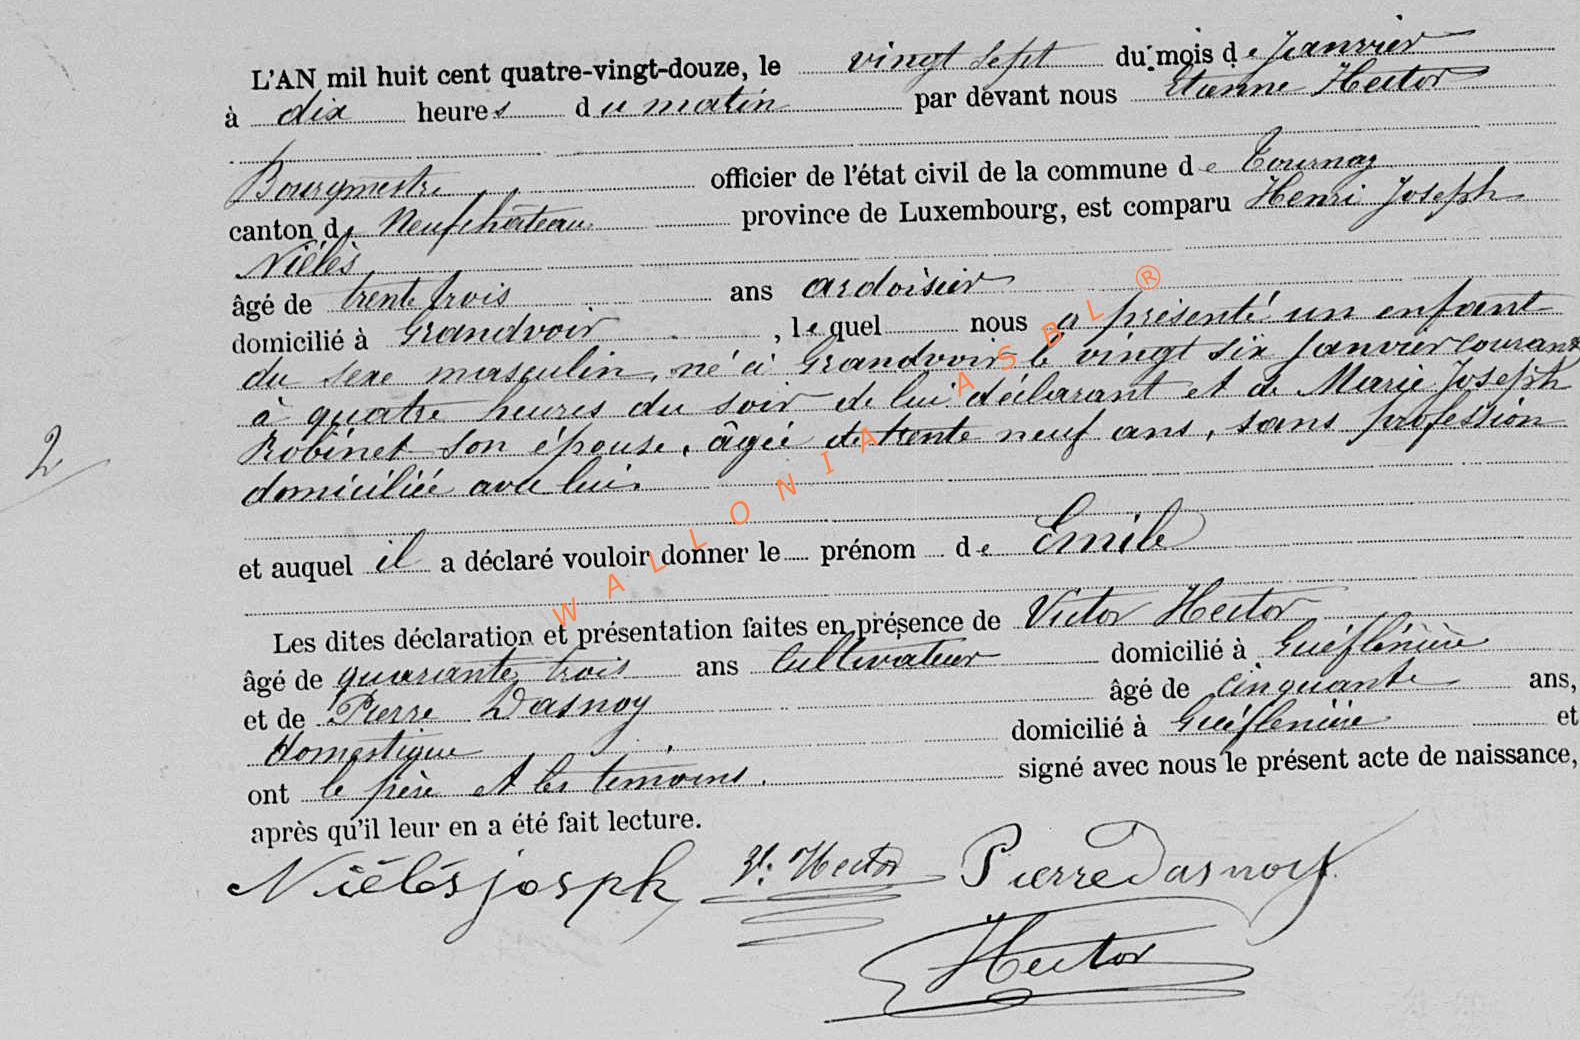 L'AN mil huit cent quatre-vingt-douze, le vingt sept du mois de Janvier
à dix heures du matin par devant nous Etienne Hector
Bourgmestre officier de l'état civil de la commune de Tournay
canton de Neufchâteau province de Luxembourg, est comparu Henri Joseph
Niélès
âgé de trente trois ans ardoisier
domicilié à Grandvoir, lequel nous a présenté un enfant
du sexe masculin, né à Grandvoir le vingt six Janvier courant
à quatre heures du soir de lui déclarant et de Marie Joseph
Robinet son épouse, âgée de trente neuf ans, sans profession
domiciliée avec lui.
et auquel il a déclaré vouloir donner le prénom de Emile
Les dites déclaration et présentation faites en présence de Victor Hector
âgé de quarante trois ans Cultivateur domicilié à
et de Pierre Dasnoy âgé de Cinquante ans,
domestique domicilié à et
ont le père et les témoins. signé avec nous le présent acte de naissance,
après qu'il leur en a été fait lecture.
Niélès josph V. Hector Pierre Dasnoy
Hector
2
WALLONIA ASBL ®